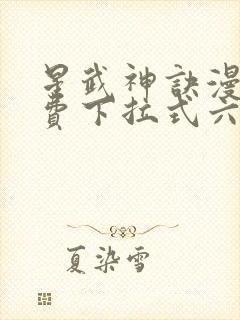 星武神訣漫
費下拉式六
夏染雪